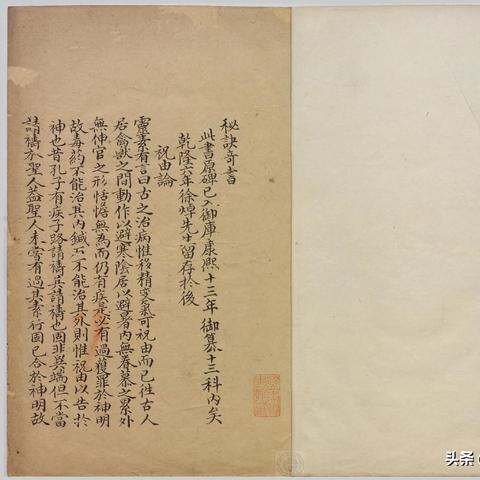 秘訣奇書
此書原碑已入御庫康熙十三年御纂十三科內矣
乾隆六年徐焯先生留存於後
祝由論
靈素有言曰古之治病惟移精变氣可祝由而已徃古人
居禽獸之間動作以避寒陰居以避暑內無眷慕之累外
無伸官之形恬憺無為而仍有疾是必有過獲罪於神明
故毒药不能治其內鍼石不能治其外則惟祝由以告於
神也昔孔子有疾子路請禱其請禱也固非異端但不當
請禱於聖人蓋聖人未嘗有過其素行固已合於神明故
头条